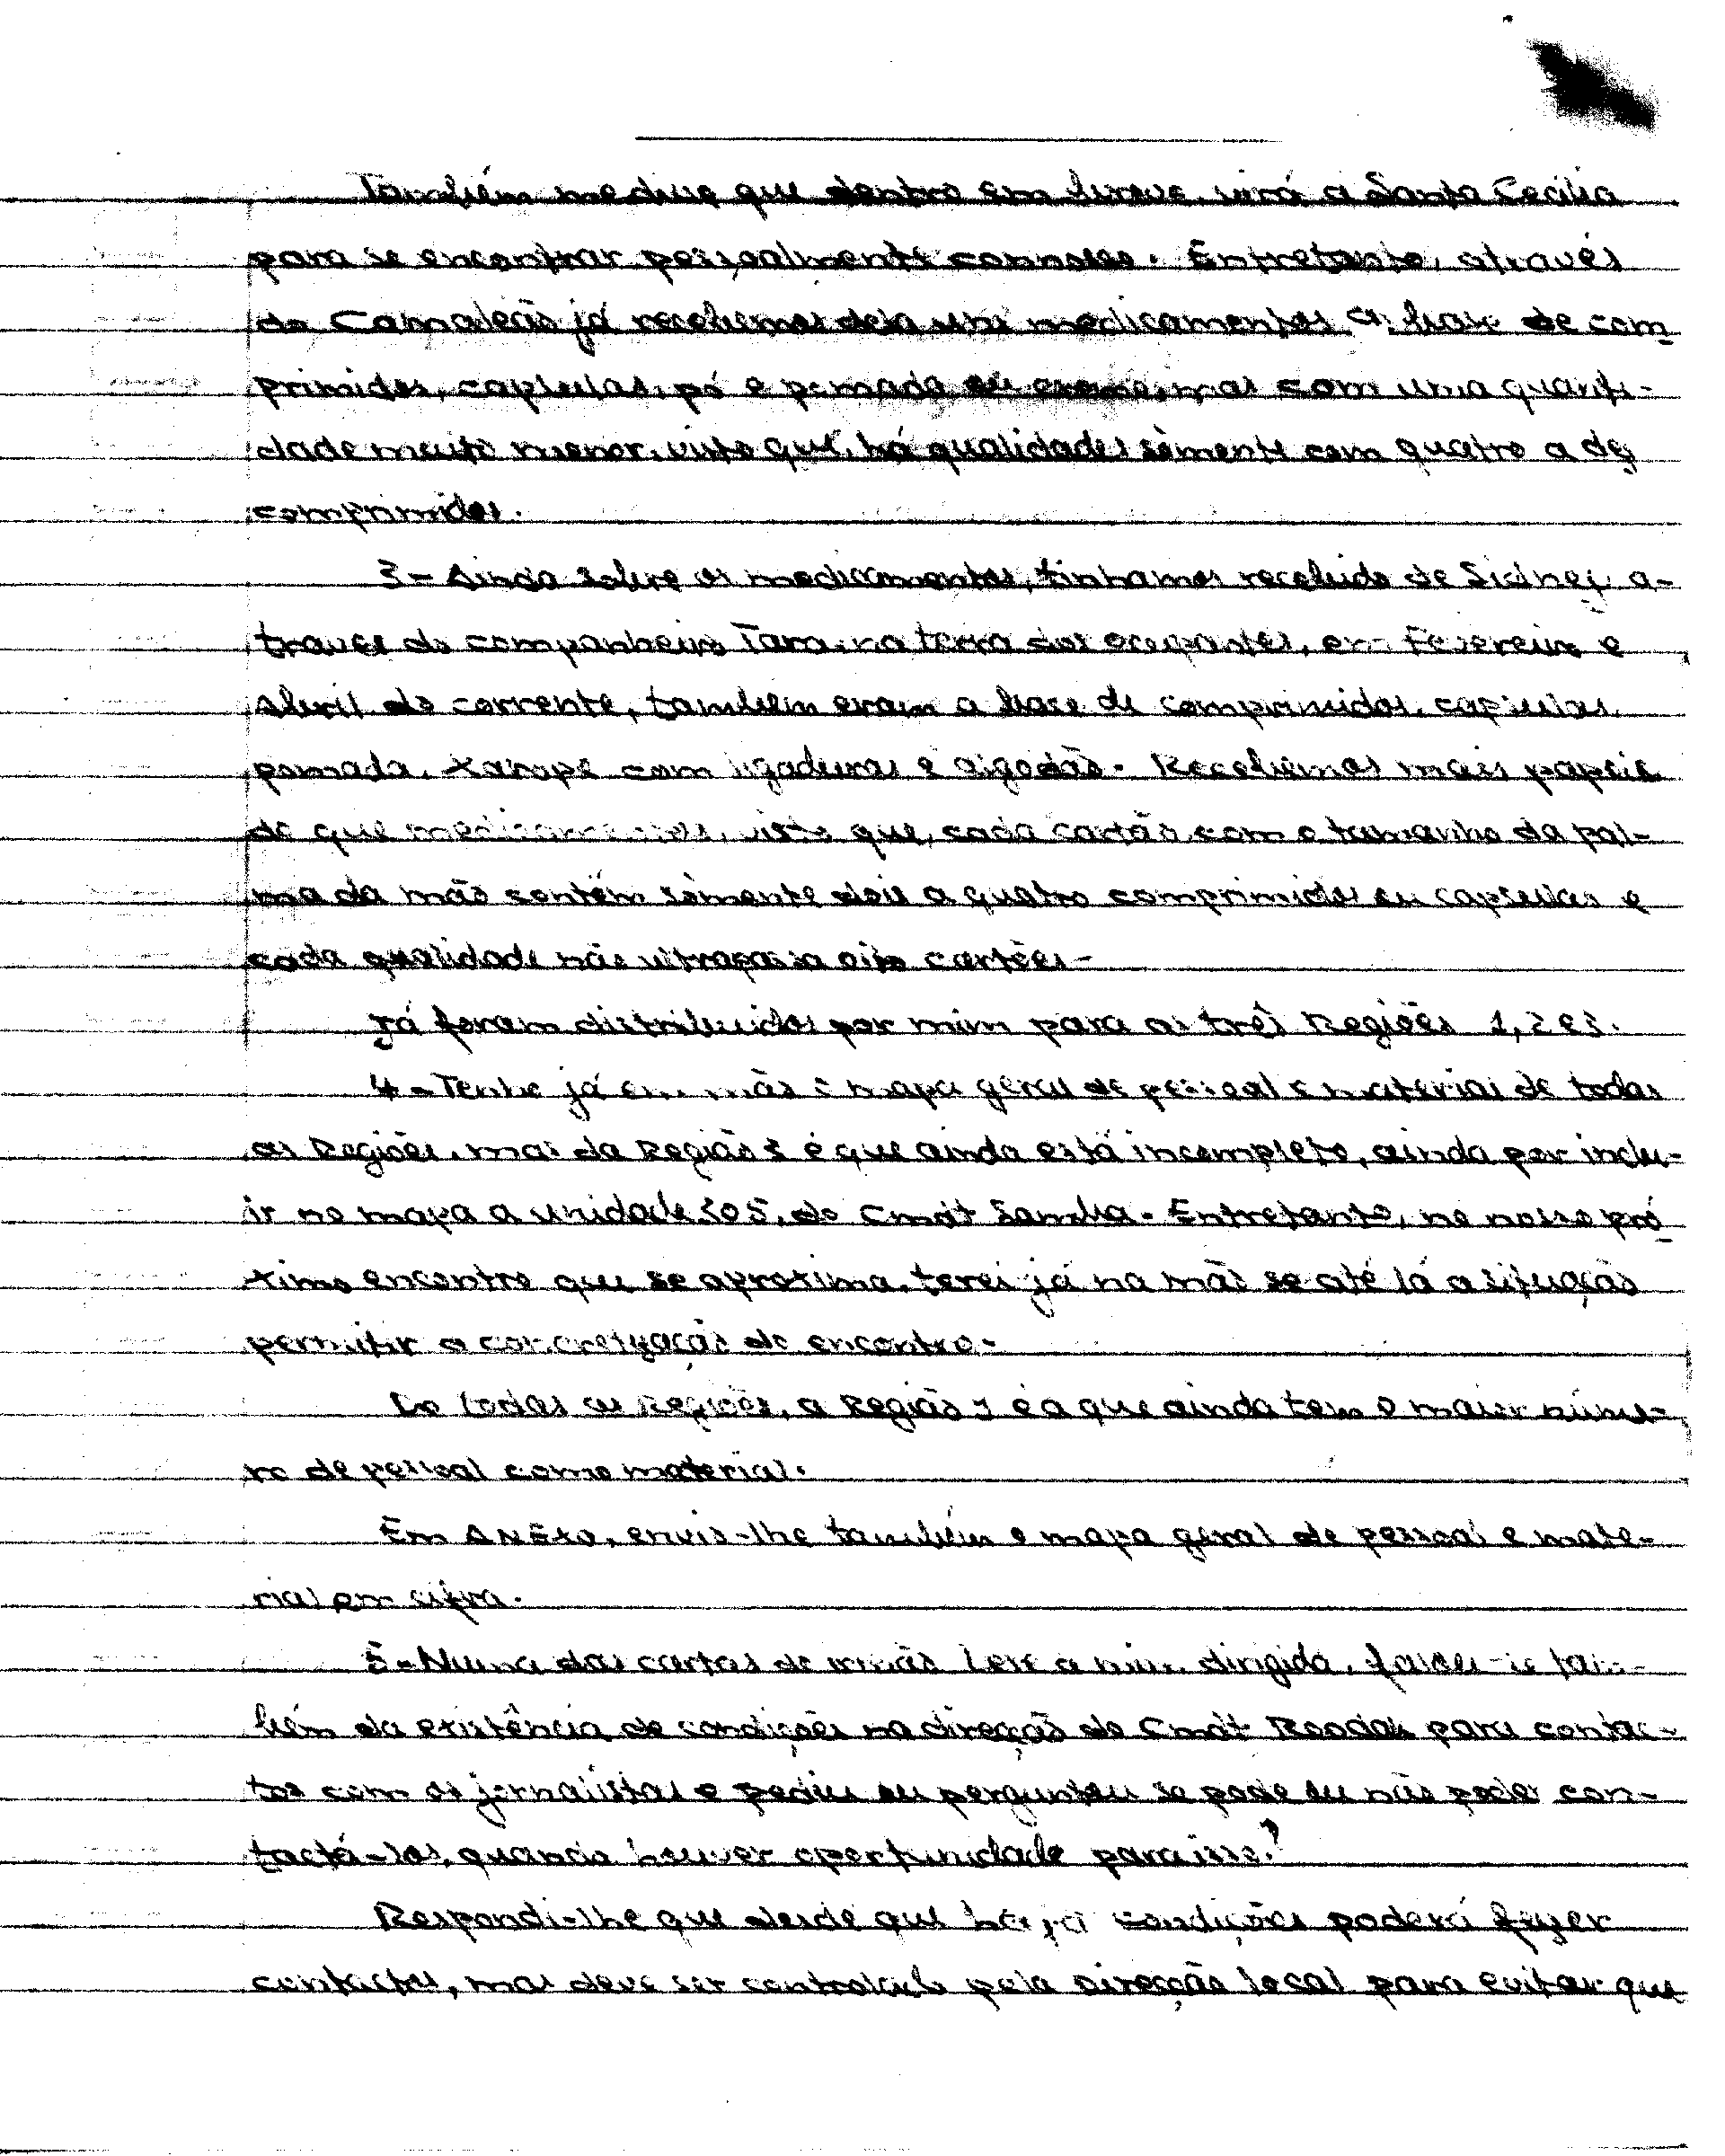 Também me disse que dentro em breve, virá a Santa Cecilia
para se encontrar pessoalmente connosco. Entretanto, através
do Camaleão já recebemos dela uns medicamentos a base de com
primidos, capsulas, pó e pomada ou creme, mas com uma quanti-
dade muito menor, visto que, há qualidades sòmente com quatro a dez
comprimidos.
3- Ainda sobre os medicamentos, tinhamos recebido de Sidney, a-
traves do companheiro Tara, na terra dos ocupantes, em Fevereiro e
Abril do corrente, também eram a base de comprimidos, capsulas,
pomada, xarope com ligaduras e algodão. Recebemos mais papeis
do que medicamentos, visto que, cada cartão com o tamanho da pal-
ma da mão contém sòmente dois a quatro comprimidos ou capsulas e
cada qualidade não ultrapassa oito cartões-
Já foram distribuidos por mim para as três Regiões 1, 2 e 3.
4-Tenho já em mão o mapa geral de pessoal e material de todas
as Regiões, mas da Região 3 é que ainda está incompleto, ainda por inclu-
ir no mapa a unidade 305, do Cmdt Samba. Entretanto, no nosso pró
ximo encontro que se aproxima, terei já na mão se até lá a situação
permitir a concretização do encontro.
De todas as Regiões, a Região 3 é a que ainda tem o maior núme-
ro de pessoal como material.
Em ANEXO, envio-lhe também o mapa geral de pessoal e mate-
rial em cifra.
5-Numa das cartas do irmão Lere a mim dirigida, falou-se tam-
bém da existência de condições na direcção do Cmdt Roodak para contac-
tos com os jornalistas e pediu ou perguntou se pode ou não poder con-
tactá-los, quando houver oportunidade para isso?
Respondi-lhe que desde que haja condições poderá fazer
contactos, mas deve ser controlado pela direcção local para evitar que